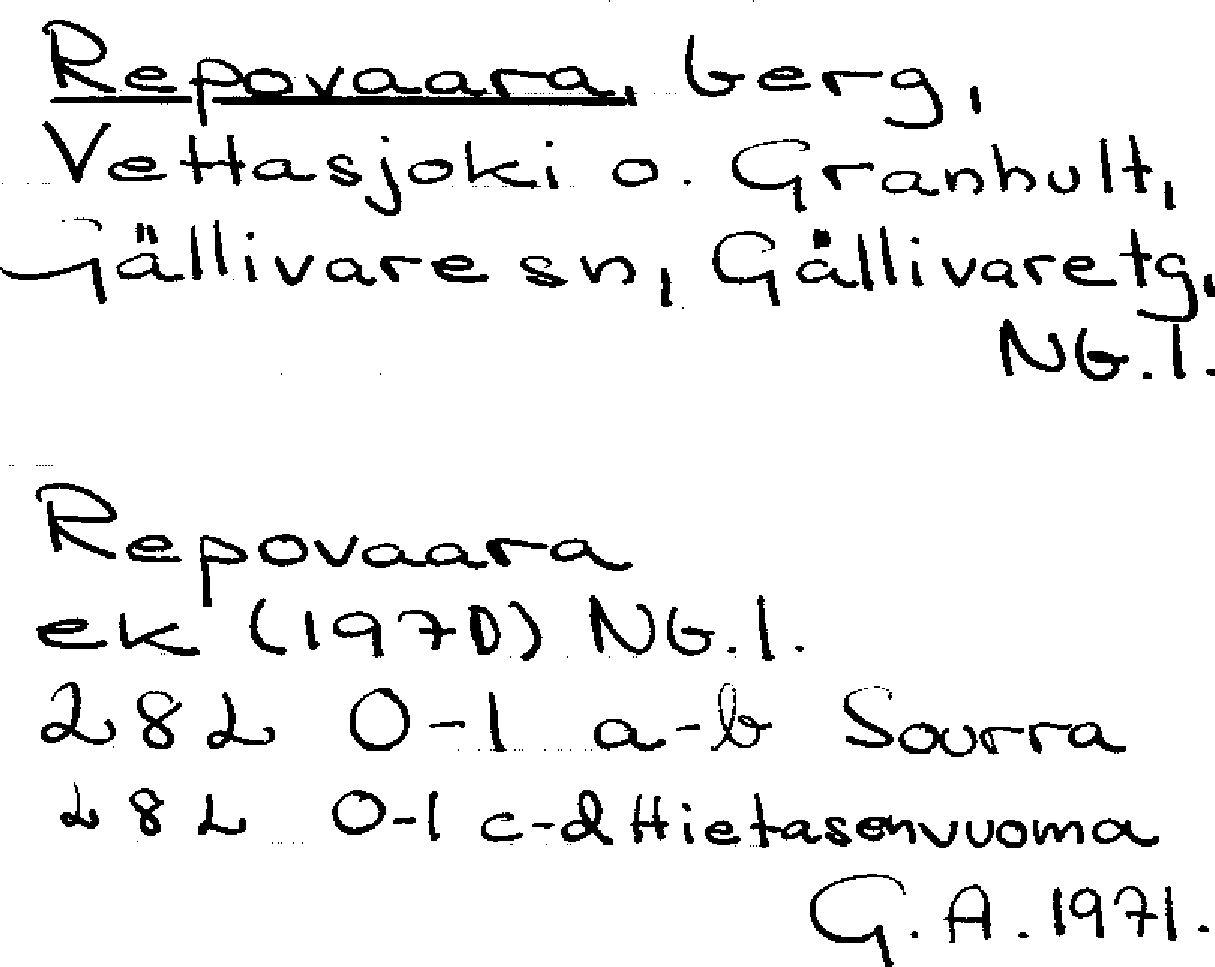 Repovaara, berg,
Vettasjoki o. Granhult,
Gällivare sn, Gällivare tg,
NB. l.
Repovaara
ek (1970) NB. l.
28L 0-1 a-b Sourra
28L 0-1 c-d Hietasenvuoma
G. A. 1971.